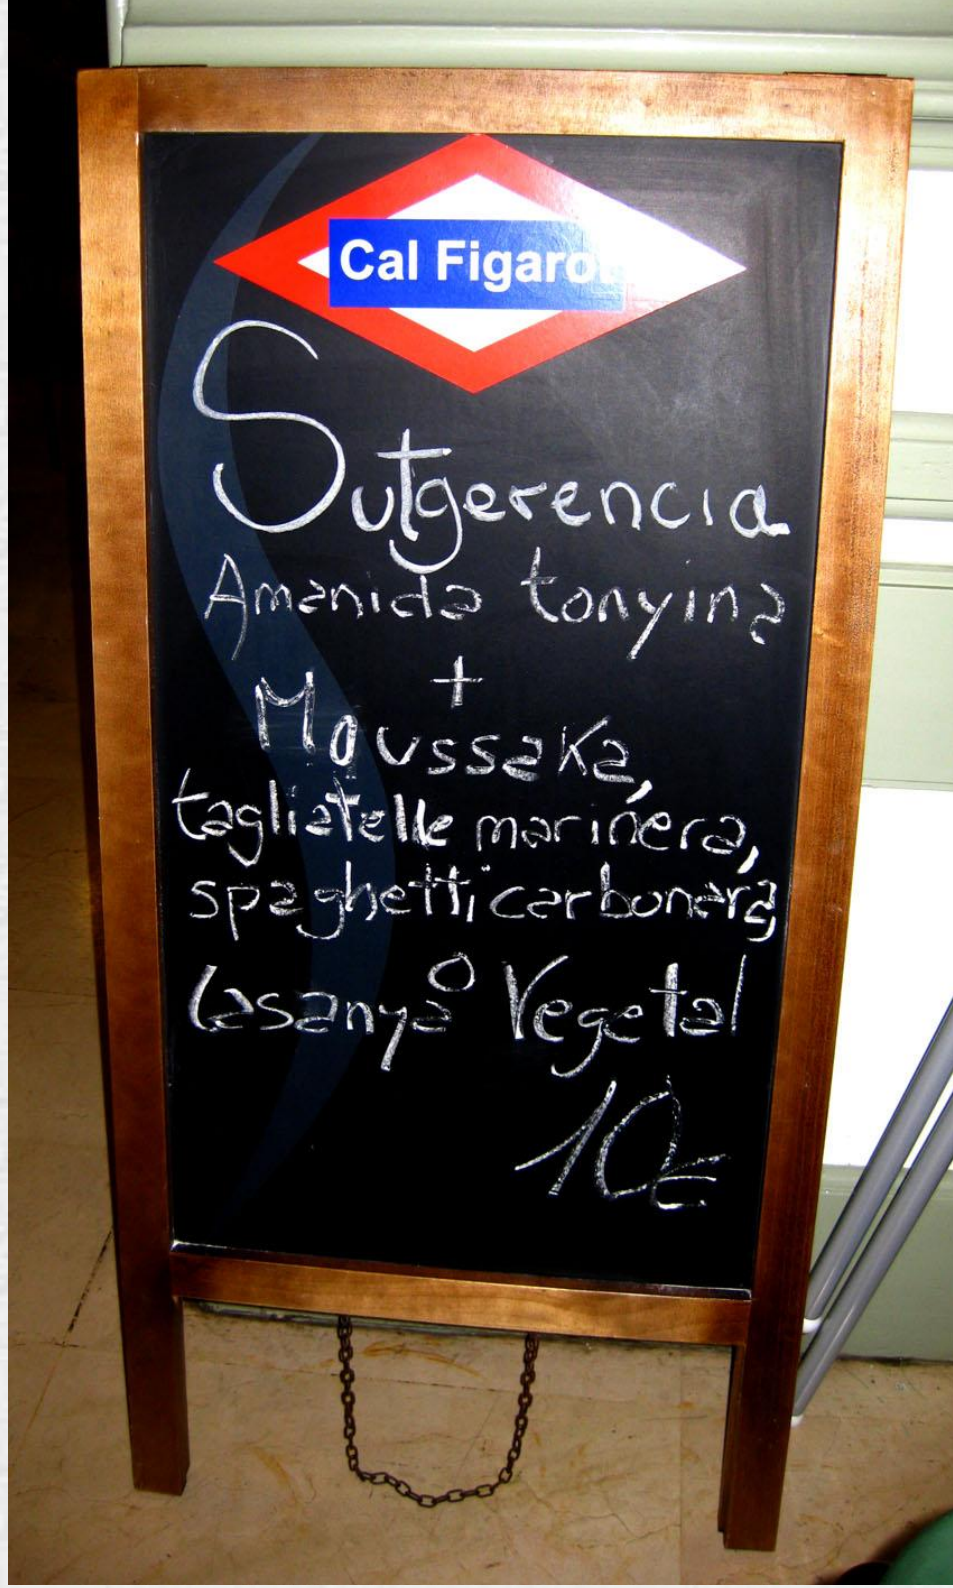 Cal Figarot
Sutgerencia
Amanida tonyina
+
Moussaka,
tagliatelle mariñera,
spaghetti carbonara,
o
Lasanya Vegetal
10€